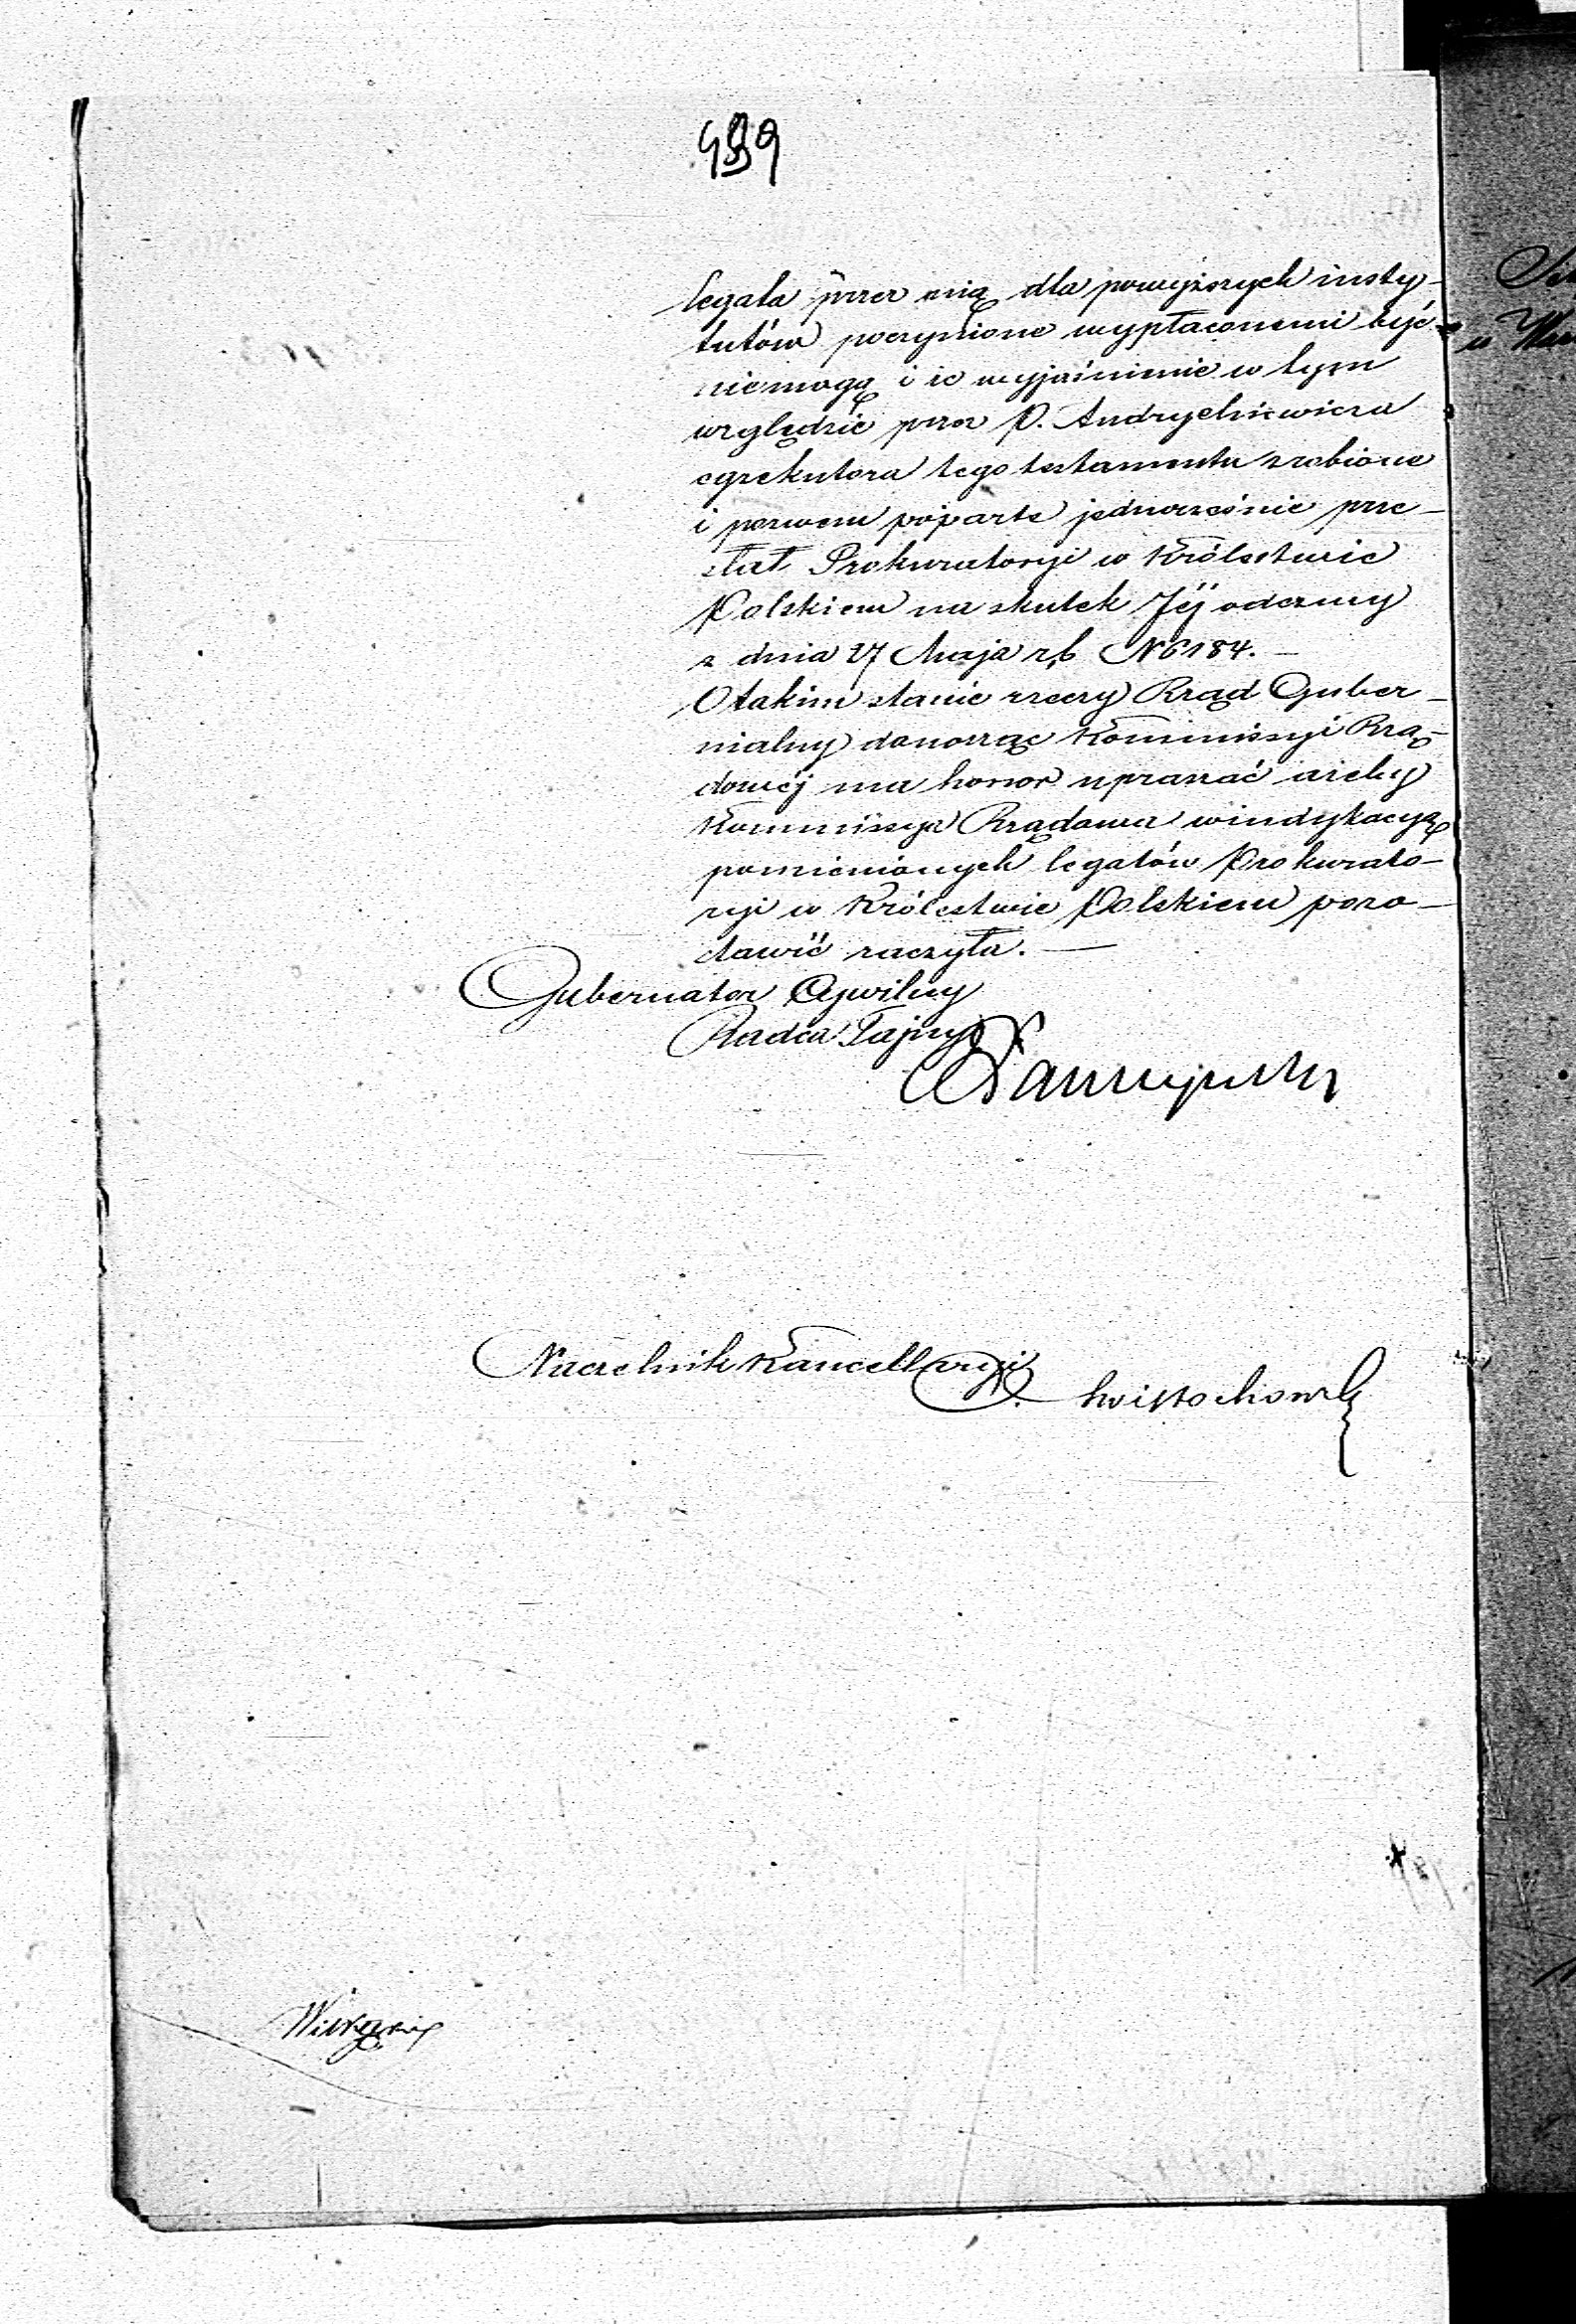 legata przez nią dla powyższych insty-
tutów poczynione wypłaconemi być
niemogą i że wyjaśnienie w tym
względzie przez P. Andrychiewicza
egzekutora tego testamentu zrobione
i pozwem poparte jednocześnie prze-
słał Prokuratoryi w Królestwie
Polskiem na skutek Jéj odezwy
z dnia 27 Maja r.b. N 6184. —
O takim stanie rzeczy Rząd Guber-
nialny donosząc Kommissyi Rzą-
dowéj ma honor upraszać ażeby
Kommissya Rządowa windykacyą
pomienionych legatów Prokurato-
ryi w Królestwie Polskiem pozo-
stawić raczyła. —
Gubernator Cywilny
Radca Tajny
Naczelnik Kancellaryi